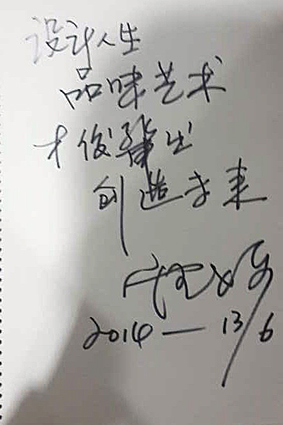 设计人生
品味艺术
才俊辈出
创造未来
2014—13/6